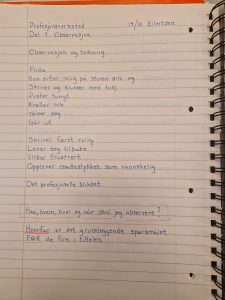 Profesjonsverksted 19/10 Eilertsen
Del 1. Observasjon
Observasjon og tolkning
Frida
Hun sitter rolig på stolen sin og
Skriver og klusser med tusj
Puster tungt
Krøller ark
reiser seg
Går ut
Skriver først rolig
Lener seg tilbake
Virker frustrert
Opplever matestykket som vanskelig
Det profesjonelle blikket
Hva, hvem, hvor og når skal jeg observere?
Hvorfor er det grunnleggende spørsmålet
FØR de fire i tittelen